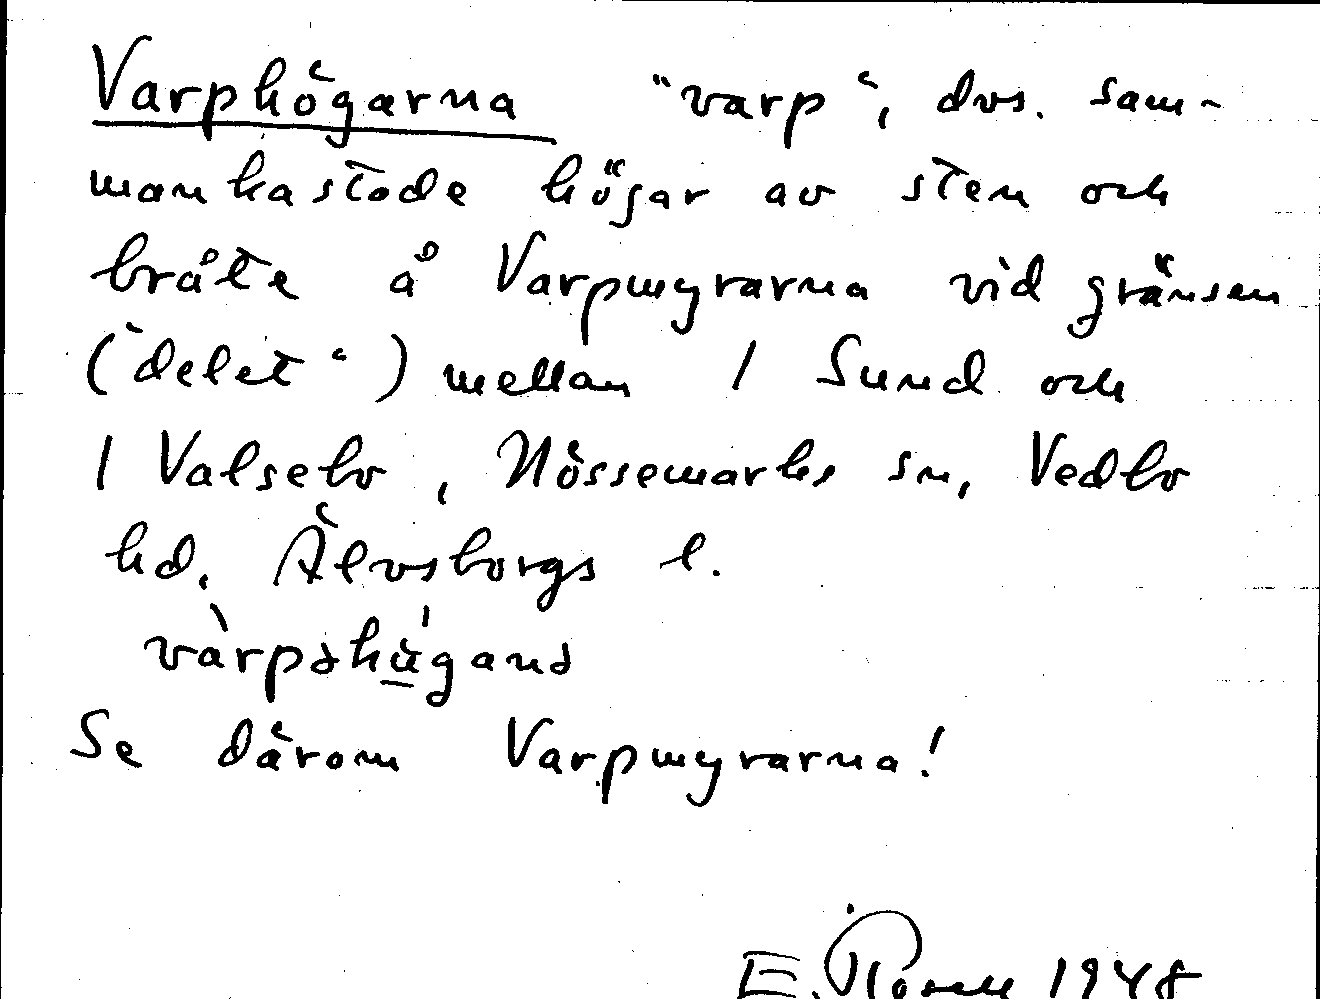 Varphögarna "varp", dvs. sam-
mankastade högar av sten och
bråte å Varpmyrarna vid gränsen
("delet") mellan 1 Sund och
1 Valsebo, Nössemarks sn, Vedbo
hd. Älvsborgs l.
Se därom Varpmyrarna!
E. Rosell 1948